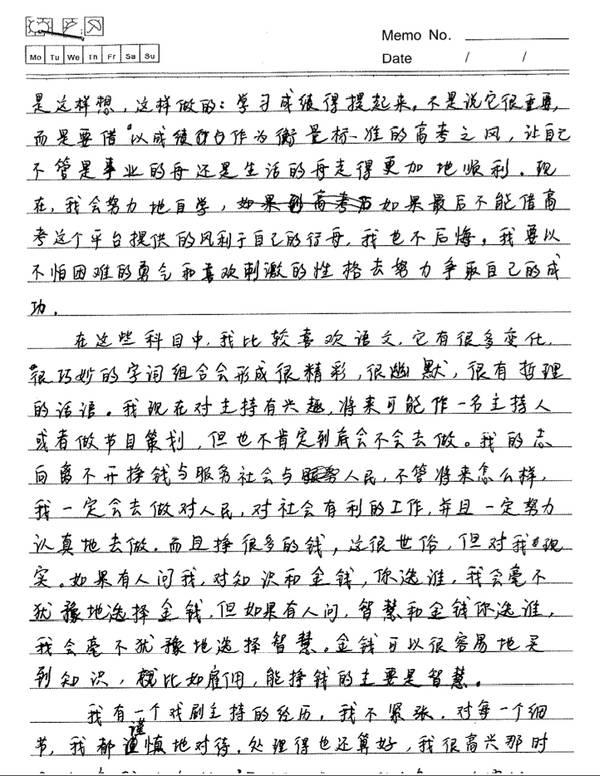 Memo No.
Mo Tu We Th Fr Sa Su
Date / /
是这样想，这样做的：学习成绩得提起来。不是说它很重要，
而是要借"以成绩作为衡量标准的高考之风，让自己
不管是事业的舟还是生活的舟走得更加地顺利。现
在，我会努力地自学，如果最后不能借高
考这个平台提供的风利于自己的行舟，我也不后悔。我要以
不怕困难的勇气和喜欢刺激的性格去努力争取自己的成
功。
在这些科目中，我比较喜欢语文，它有很多变化，
很巧妙的字词组合会形成很精彩，很幽默，很有哲理
的话语。我现在对主持有兴趣，将来可能作一名主持人
或者做节目策划，但也不肯定到底会不会去做。我的志
向离不开挣钱与服务社会与人民，不管将来怎么样，
我一定会去做对人民，对社会有利的工作，并且一定努力
认真地去做。而且挣很多的钱，这很世俗，但对我现
实。如果有人问我，对知识和金钱，你选谁，我会毫不
犹豫地选择金钱，但如果有人问，智慧和金钱你选谁，
我会毫不犹豫地选择智慧。金钱可以很容易地买
到知识，就比如雇佣，能挣钱的主要是智慧。
我有一个戏剧主持的经历，我不紧张，对每一个细
节，我都谨慎地对待。处理得也还算好，我很高兴那时